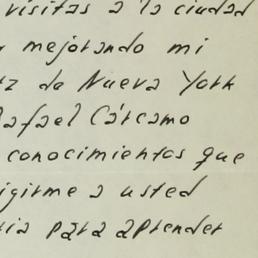 visitas a la ciudad
mejorando mi
de Nueva York
Rafael Cárcamo
conocimientos que
a usted
para aprender